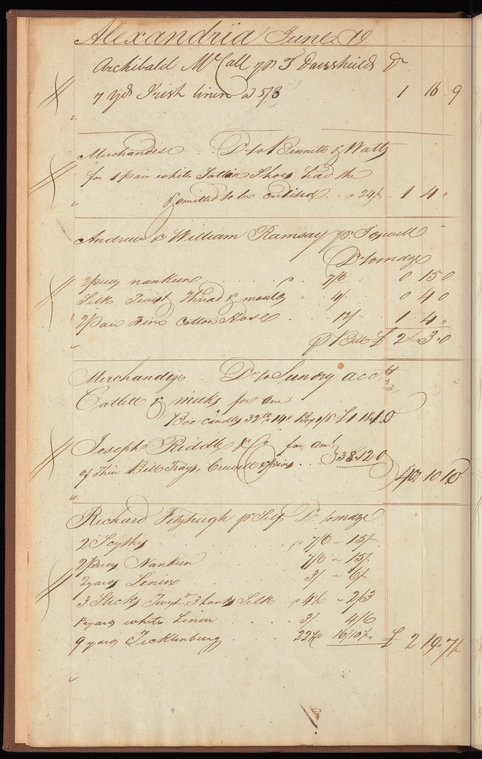 Alexandria June 19
Archibald McCall pr T Fairshield Dr
7 yds Irish linen a 5/3 1 16 9
Merchandise Dr to Bennett & Watts
for 1 pair white Sattin Shoes had the
Omitted to be credited 24/ 1 4
Andrew & William Ramsay pr
Dr to mdze
2 pieces nankeen 7/6 0 15 0
Silk Twist Thread & moulds 4/ 0 4 0
2 pair Fine Cotton Hose 12/ 1 4
pr Bill £ 2 3 0
Merchandize Dr to Sundry accots
Catlett & Meeks for am
Box Candles 32lb 14d Box 1/6 £1 18 10
Joseph Riddle & Co for amt
of their Bill Trays Crewell & Pins 38 12 0
40 10 10
Richard Fitzhugh pr Self Dr to mdze
2 Scythes 7/6 15/
2 pieces Nankeen 7/6 15/
2 yards Linen 3/ 6/
3 Sticks Twist 3 hanks Silk 2/3
yards white Linen 3/ 4/6
9 yards Ticklenburg 22½ 16/10½ £ 2 19 7½